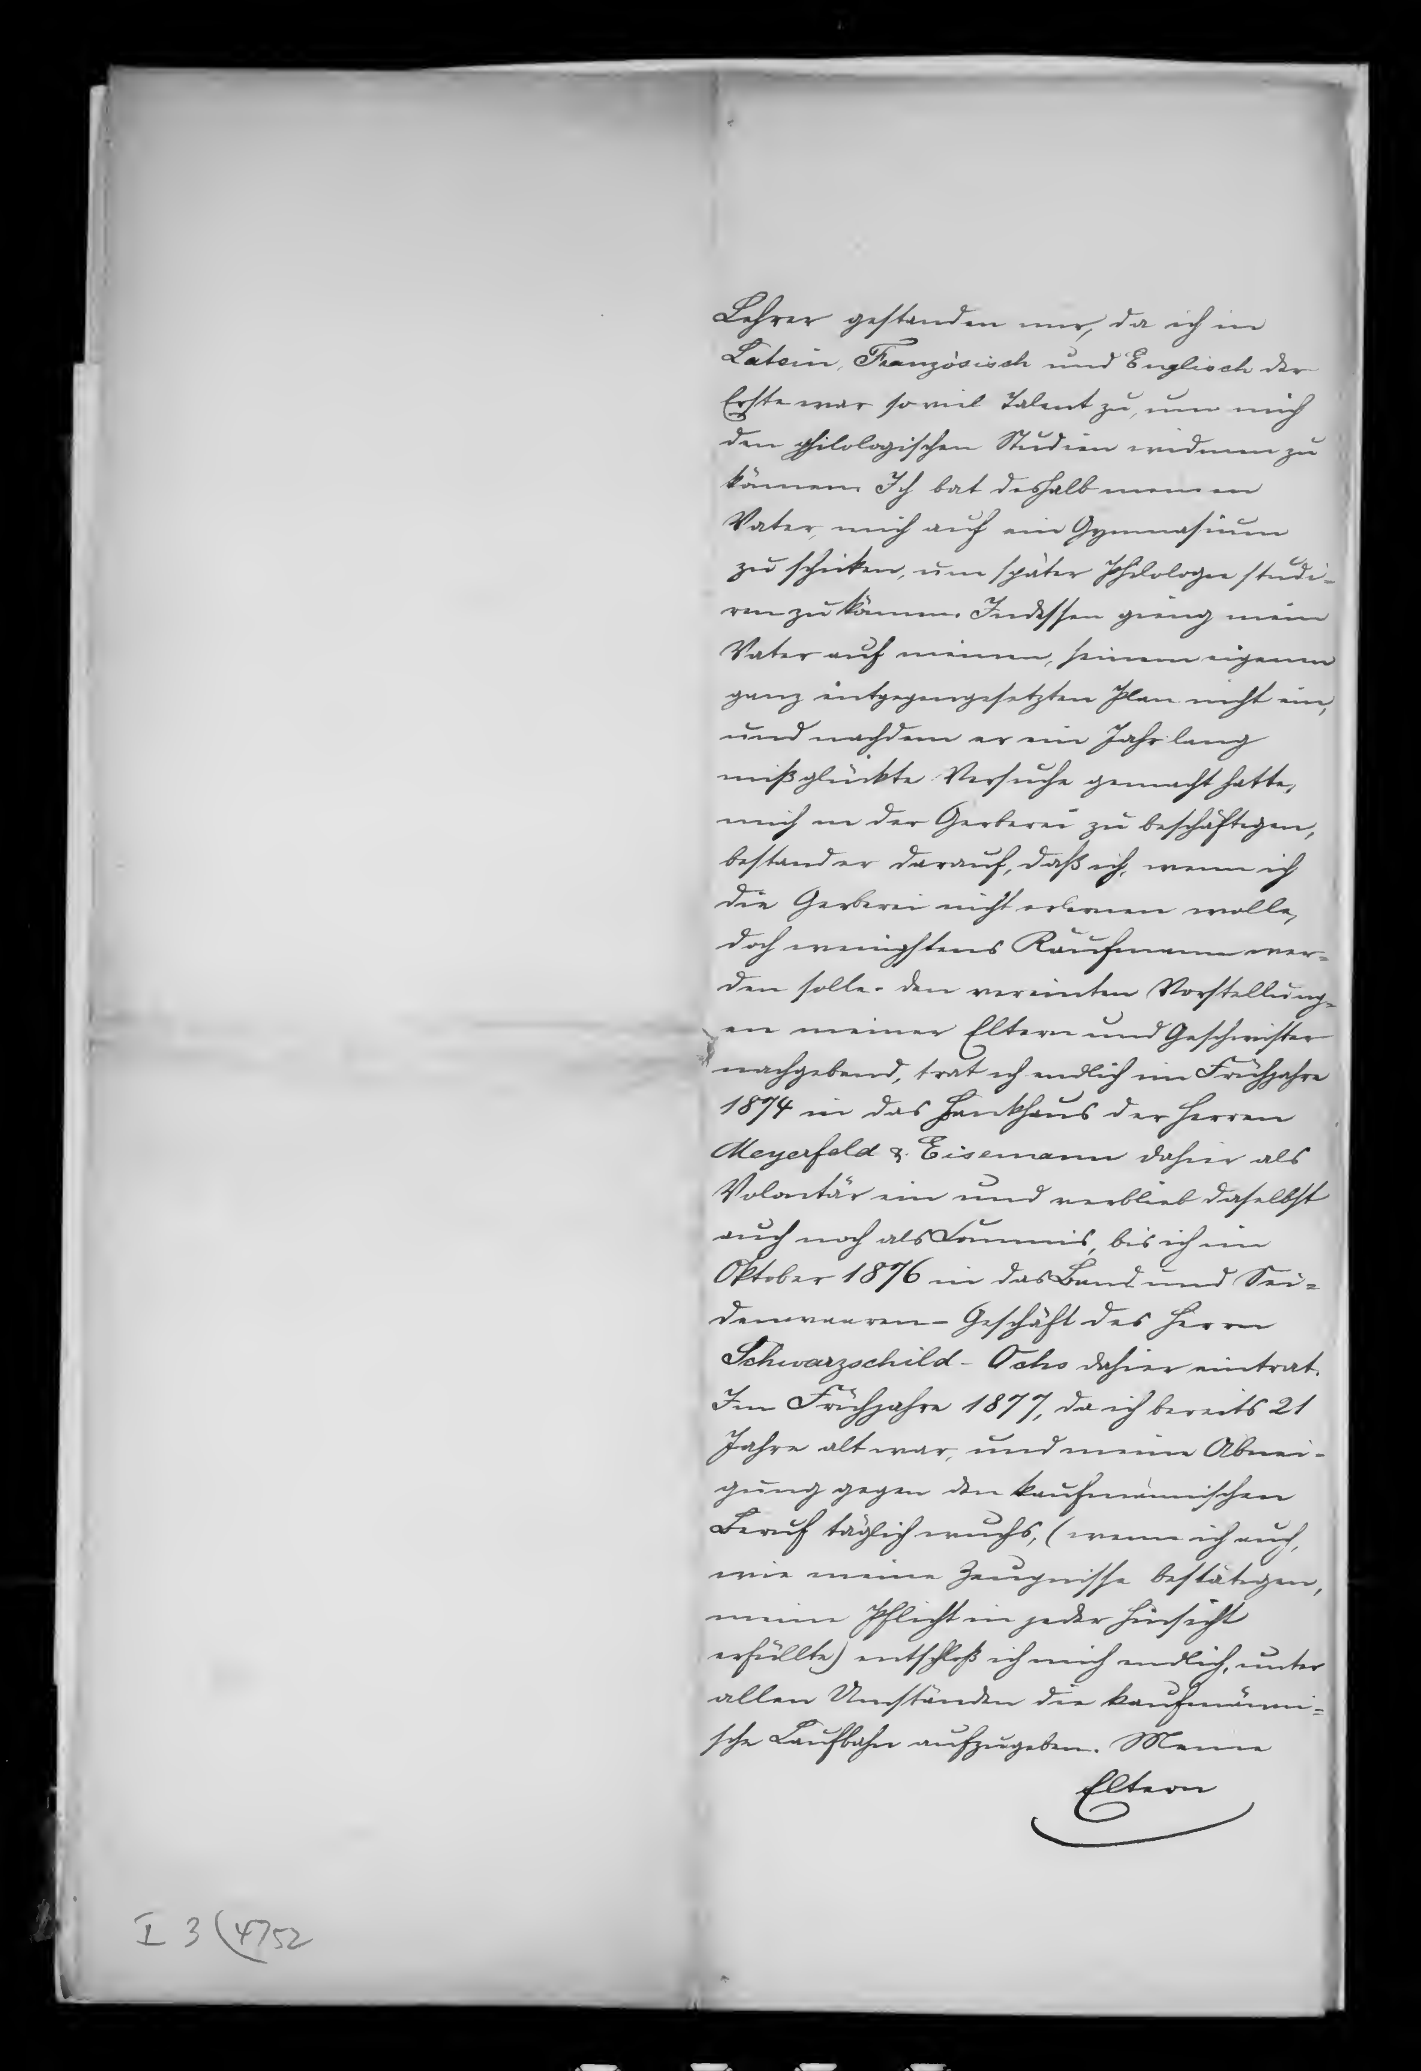 Lehrer gestanden mir, da ich in
Latein, Französisch und Englisch der
Erste war soviel Talent zu, um mich
den philologischen Studien widmen zu
können. Ich bat deshalb meinen
Vater, mich auf ein Gymnasium
zu schicken, um später Philologie studi-
ren zu können. Indessen gieng mein
Vater auf meinen, seinem eigenen
ganz entgegengesetzten Plan nicht ein,
und nachdem er ein Jahr lang
mißglückte Versuche gemacht hatte,
mich in der Gerberei zu beschäftigen,
bestand er darauf, daß ich, wenn ich
die Gerberei nicht erlernen wolle,
doch wenigstens Kaufmann wer=
den solle. Den vereinten Vorstellung=
en meiner Eltern und Geschwister
nachgebend, trat ich endlich im Frühjahre
1874 in das Bankhaus der Herren
Meyerfeld & Eisemann dahier als
Volontär ein und verblieb daselbst
auch noch als Commis, bis ich im
Oktober 1876 in das Band und Sei=
denwaaren-Geschäft des Herrn
Schwarzschild-Ochs dahier eintrat.
Im Frühjahre 1877, da ich bereits 21
Jahre alt war, und meine Abnei-
gung gegen den kaufmännischen
Beruf täglich wuchs, (wenn ich auch,
wie meine Zeugnisse bestätigen,
meine Pflicht in jeder Hinsicht
erfüllte) entschloß ich mich endlich, unter
allen Umständen die kaufmänni=
sche Laufbahn aufzugeben. Meine
Eltern
I 3 (4752